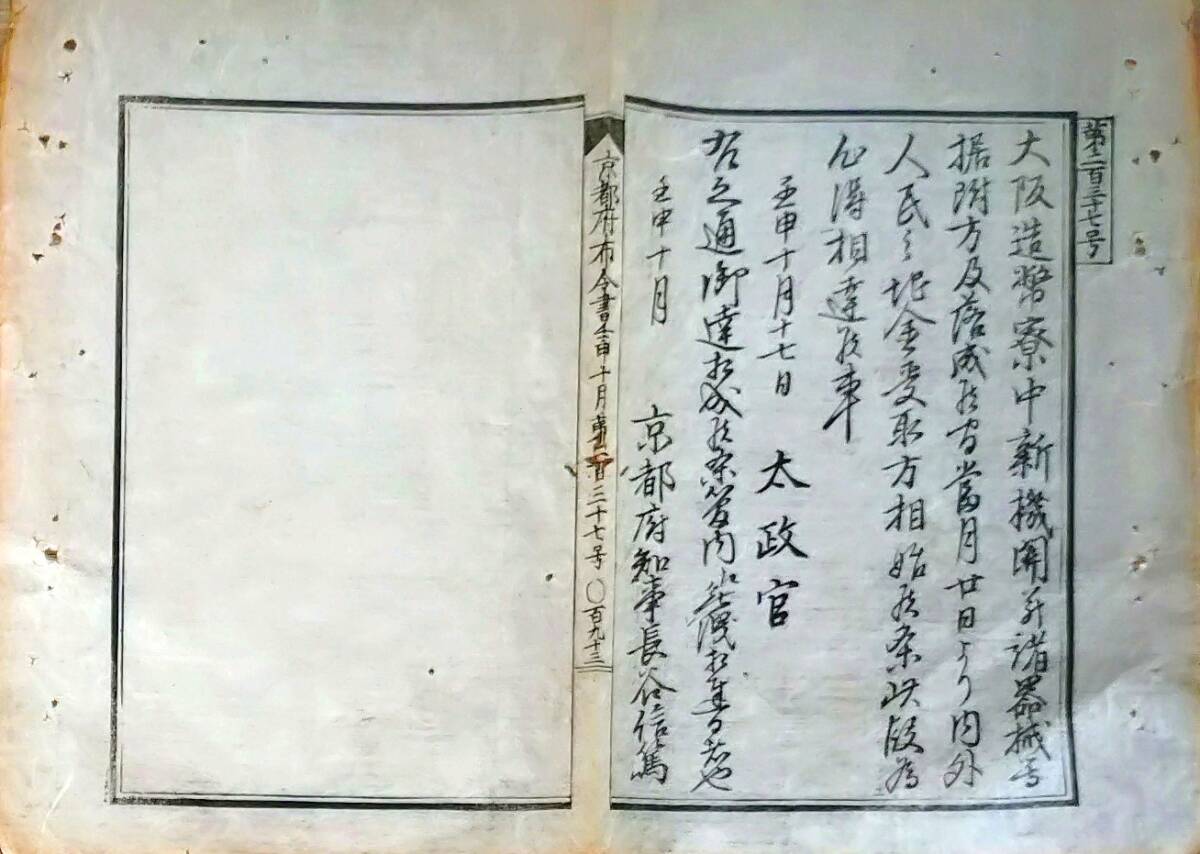 第二百三十七号
大阪造幣寮中新機関并諸器械等
据附方及落成候ニ付當月廿日より内外
人民之地金受取方相始候条此段為
心得相達候事
壬申十月十七日 太政官
右之通御達相成候条管内無洩相達るもの也
壬申十月 京都府知事長谷信篤
京都府布令書壬申十月第二百三十七号〇百九十三